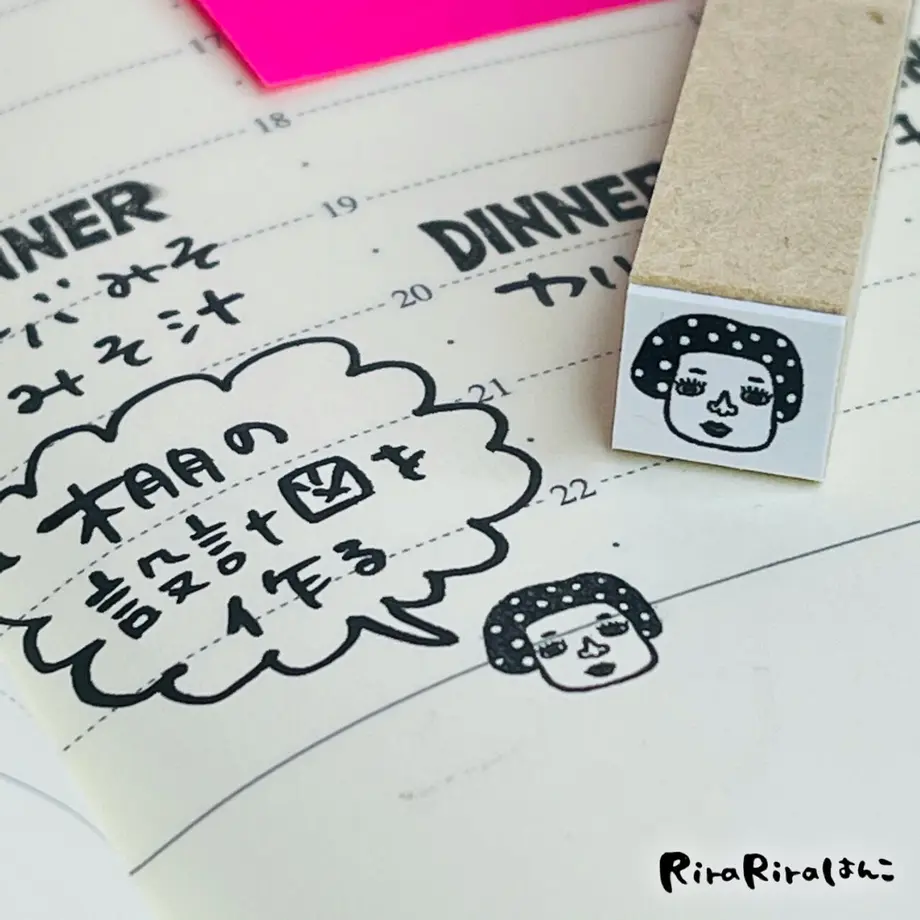 17
18
19
20
21
22
NNER
バみそ
みそ汁
DINNE
カレ
棚の
設計図を
作る
RiraRiraはんこ